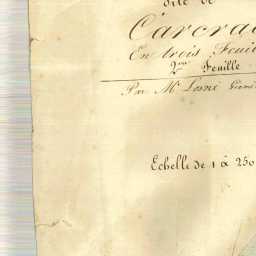 dite de
Carcra
En trois Feuil
2me Feuille
Par Mr
Echelle de 1 à 250